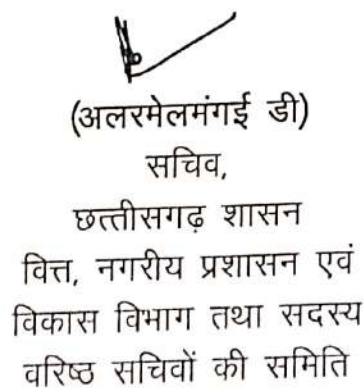 (अलरमेलमंगई डी)
सचिव,
छत्तीसगढ़ शासन
वित्त, नगरीय प्रशासन एवं
विकास विभाग तथा सदस्य
वरिष्ठ सचिवों की समिति